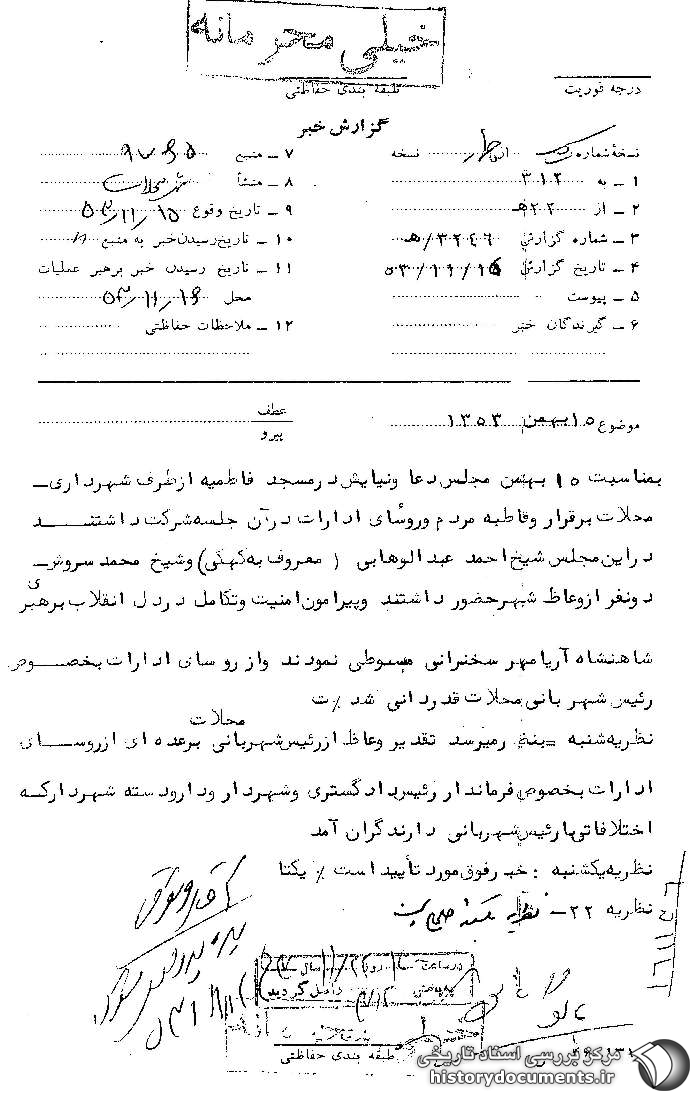 خیلی محرمانه
طبقه بندی حفاظتی
درجه فوریت
گزارش خبر
نسخه شماره نسخه
۱ - به ۳۱۲
۲ - از ۲۲ هـ
۳ - شماره گزارش ۳۲۴۶ / هـ
۴ - تاریخ گزارش ۵۳/۱۱/۱۶
۵ - پیوست
۶ - گیرندگان خبر
۷ - منبع
۸ - منشأ محلات
۹ - تاریخ وقوع ۵۳/۱۱/۱۵
۱۰ - تاریخ رسیدن خبر به منبع
۱۱ - تاریخ رسیدن خبر برهبر عملیات
محل ۵۳/۱۱/۱۶
۱۲ - ملاحظات حفاظتی
موضوع ۱۵ بهمن ۱۳۵۳
عطف
پیرو
بمناسبت ۱۵ بهمن مجلس دعا ونیایش درمسجد فاطمیه ازطرف شهرداری -
محلات برقرار وقاطبه مردم وروسای ادارات درآن جلسه شرکت داشتند
دراین مجلس شیخ احمد عبدالوهابی ( معروف به کهکی ) وشیخ محمد سروش -
دونفر ازوعاظ شهرحضور داشتند وپیرامون امنیت وتکامل دردل انقلاب برهبری
شاهنشاه آریامهر سخنرانی مبسوطی نمودند واز روسای ادارات بخصوص
رئیس شهربانی محلات قدردانی شد ٪ ت
نظریه شنبه = بنظر میرسد تقدیر وعاظ ازرئیس شهربانی محلات برعده ای ازروسای
ادارات بخصوص فرماندار رئیس دادگستری وشهردار ودارودسته شهردارکه
اختلافاتی بارئیس شهربانی دارندگران آمد
نظریه یکشنبه : خبرفوق مورد تأییداست ٪ یکتا
نظریه ۲۲ - نظریه یکشنبه صحیح است
طبقه بندی حفاظتی
مرکز بررسی اسناد تاریخی
historydocuments.ir